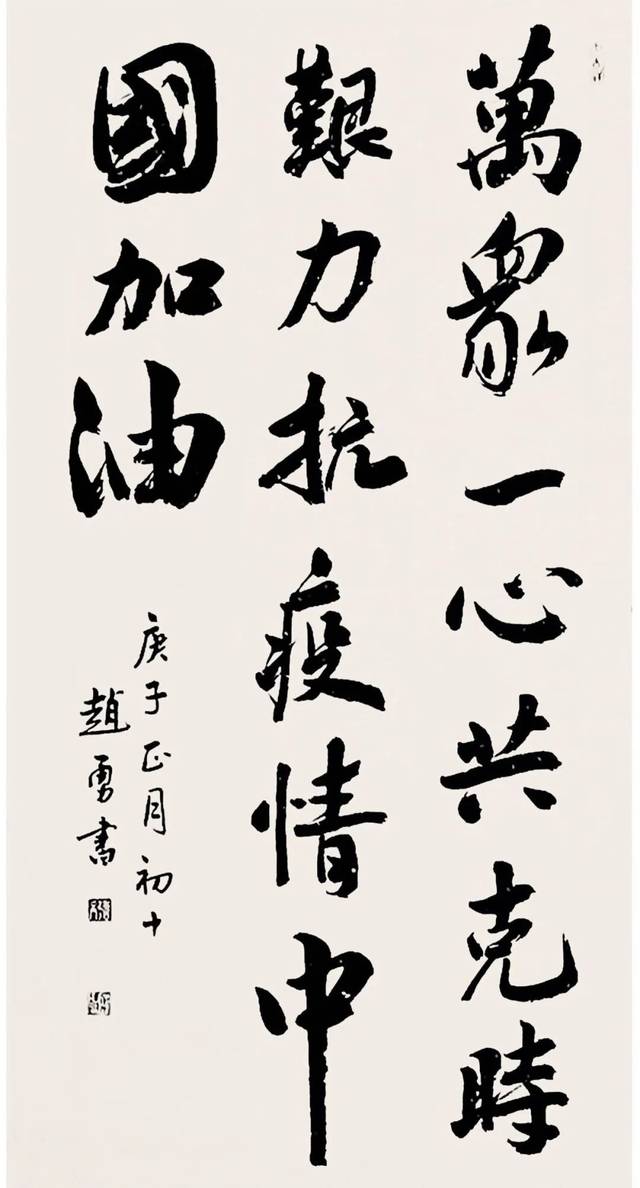 萬衆一心共克時
艱力抗疫情中
國加油
庚子正月初十
趙勇書